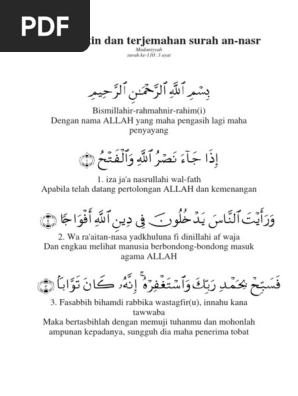 PDF
in dan terjemahan surah an-nasr
Madaniyyah
surah ke-110: 3 ayat
بِسْمِ ٱللَّهِ ٱلرَّحْمَٰنِ ٱلرَّحِيمِ
Bismillahir-rahmahnir-rahim(i)
Dengan nama ALLAH yang maha pengasih lagi maha
penyayang
إِذَا جَآءَ نَصْرُ ٱللَّهِ وَٱلْفَتْحُ ١
1. iza ja'a nasrullahi wal-fath
Apabila telah datang pertolongan ALLAH dan kemenangan
وَرَأَيْتَ ٱلنَّاسَ يَدْخُلُونَ فِى دِينِ ٱللَّهِ أَفْوَاجًا ٢
2. Wa ra'aitan-nasa yadkhuluna fi dinillahi af waja
Dan engkau melihat manusia berbondong-bondong masuk
agama ALLAH
فَسَبِّحْ بِحَمْدِ رَبِّكَ وَٱسْتَغْفِرْهُ ۚ إِنَّهُۥ كَانَ تَوَّابًۢا ٣
3. Fasabbih bihamdi rabbika wastagfir(u), innahu kana
tawwaba
Maka bertasbihlah dengan memuji tuhanmu dan mohonlah
ampunan kepadanya, sungguh dia maha penerima tobat